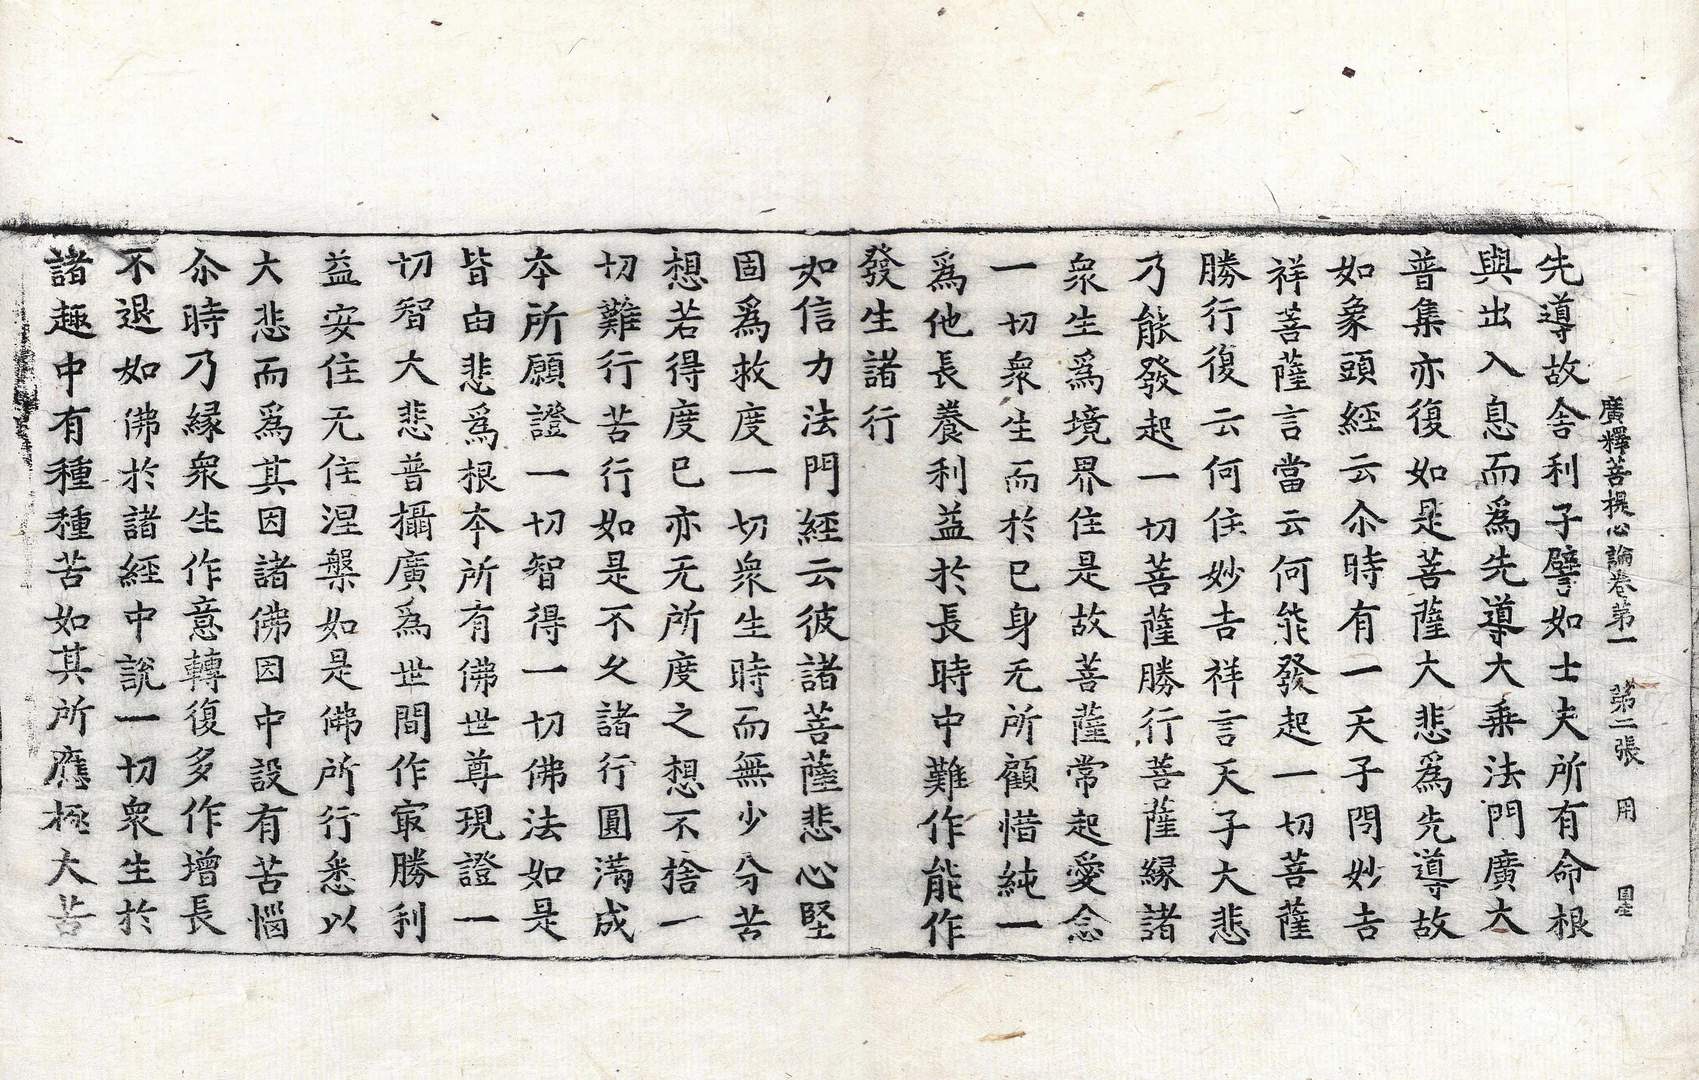 廣釋菩提心論卷第一 第二張 用
先導故舍利子譬如士夫所有命根
與出入息而爲先導大乗法門廣大
普集亦復如是菩薩大悲爲先導故
如象頭經云尒時有一天子問妙吉
祥菩薩言當云何能發起一切菩薩
勝行復云何住妙吉祥言天子大悲
乃能發起一切菩薩勝行菩薩縁諸
衆生爲境界住是故菩薩常起愛念
一切衆生而於已身无所顧惜純一
爲他長養利益於長時中難作能作
發生諸行
如信力法門經云彼諸菩薩悲心堅
固爲救度一切衆生時而無少分苦
想若得度已亦无所度之想不捨一
切難行苦行如是不久諸行圓滿成
夲所願證一切智得一切佛法如是
皆由悲爲根夲所有佛世尊現證一
切智大悲普攝廣爲世間作㝡勝利
益安住无住涅槃如是佛所行悉以
大悲而爲其因諸佛因中設有苦惱
尒時乃縁衆生作意轉復多作增長
不退如佛於諸經中說一切衆生於
諸趣中有種種苦如其所應極大苦